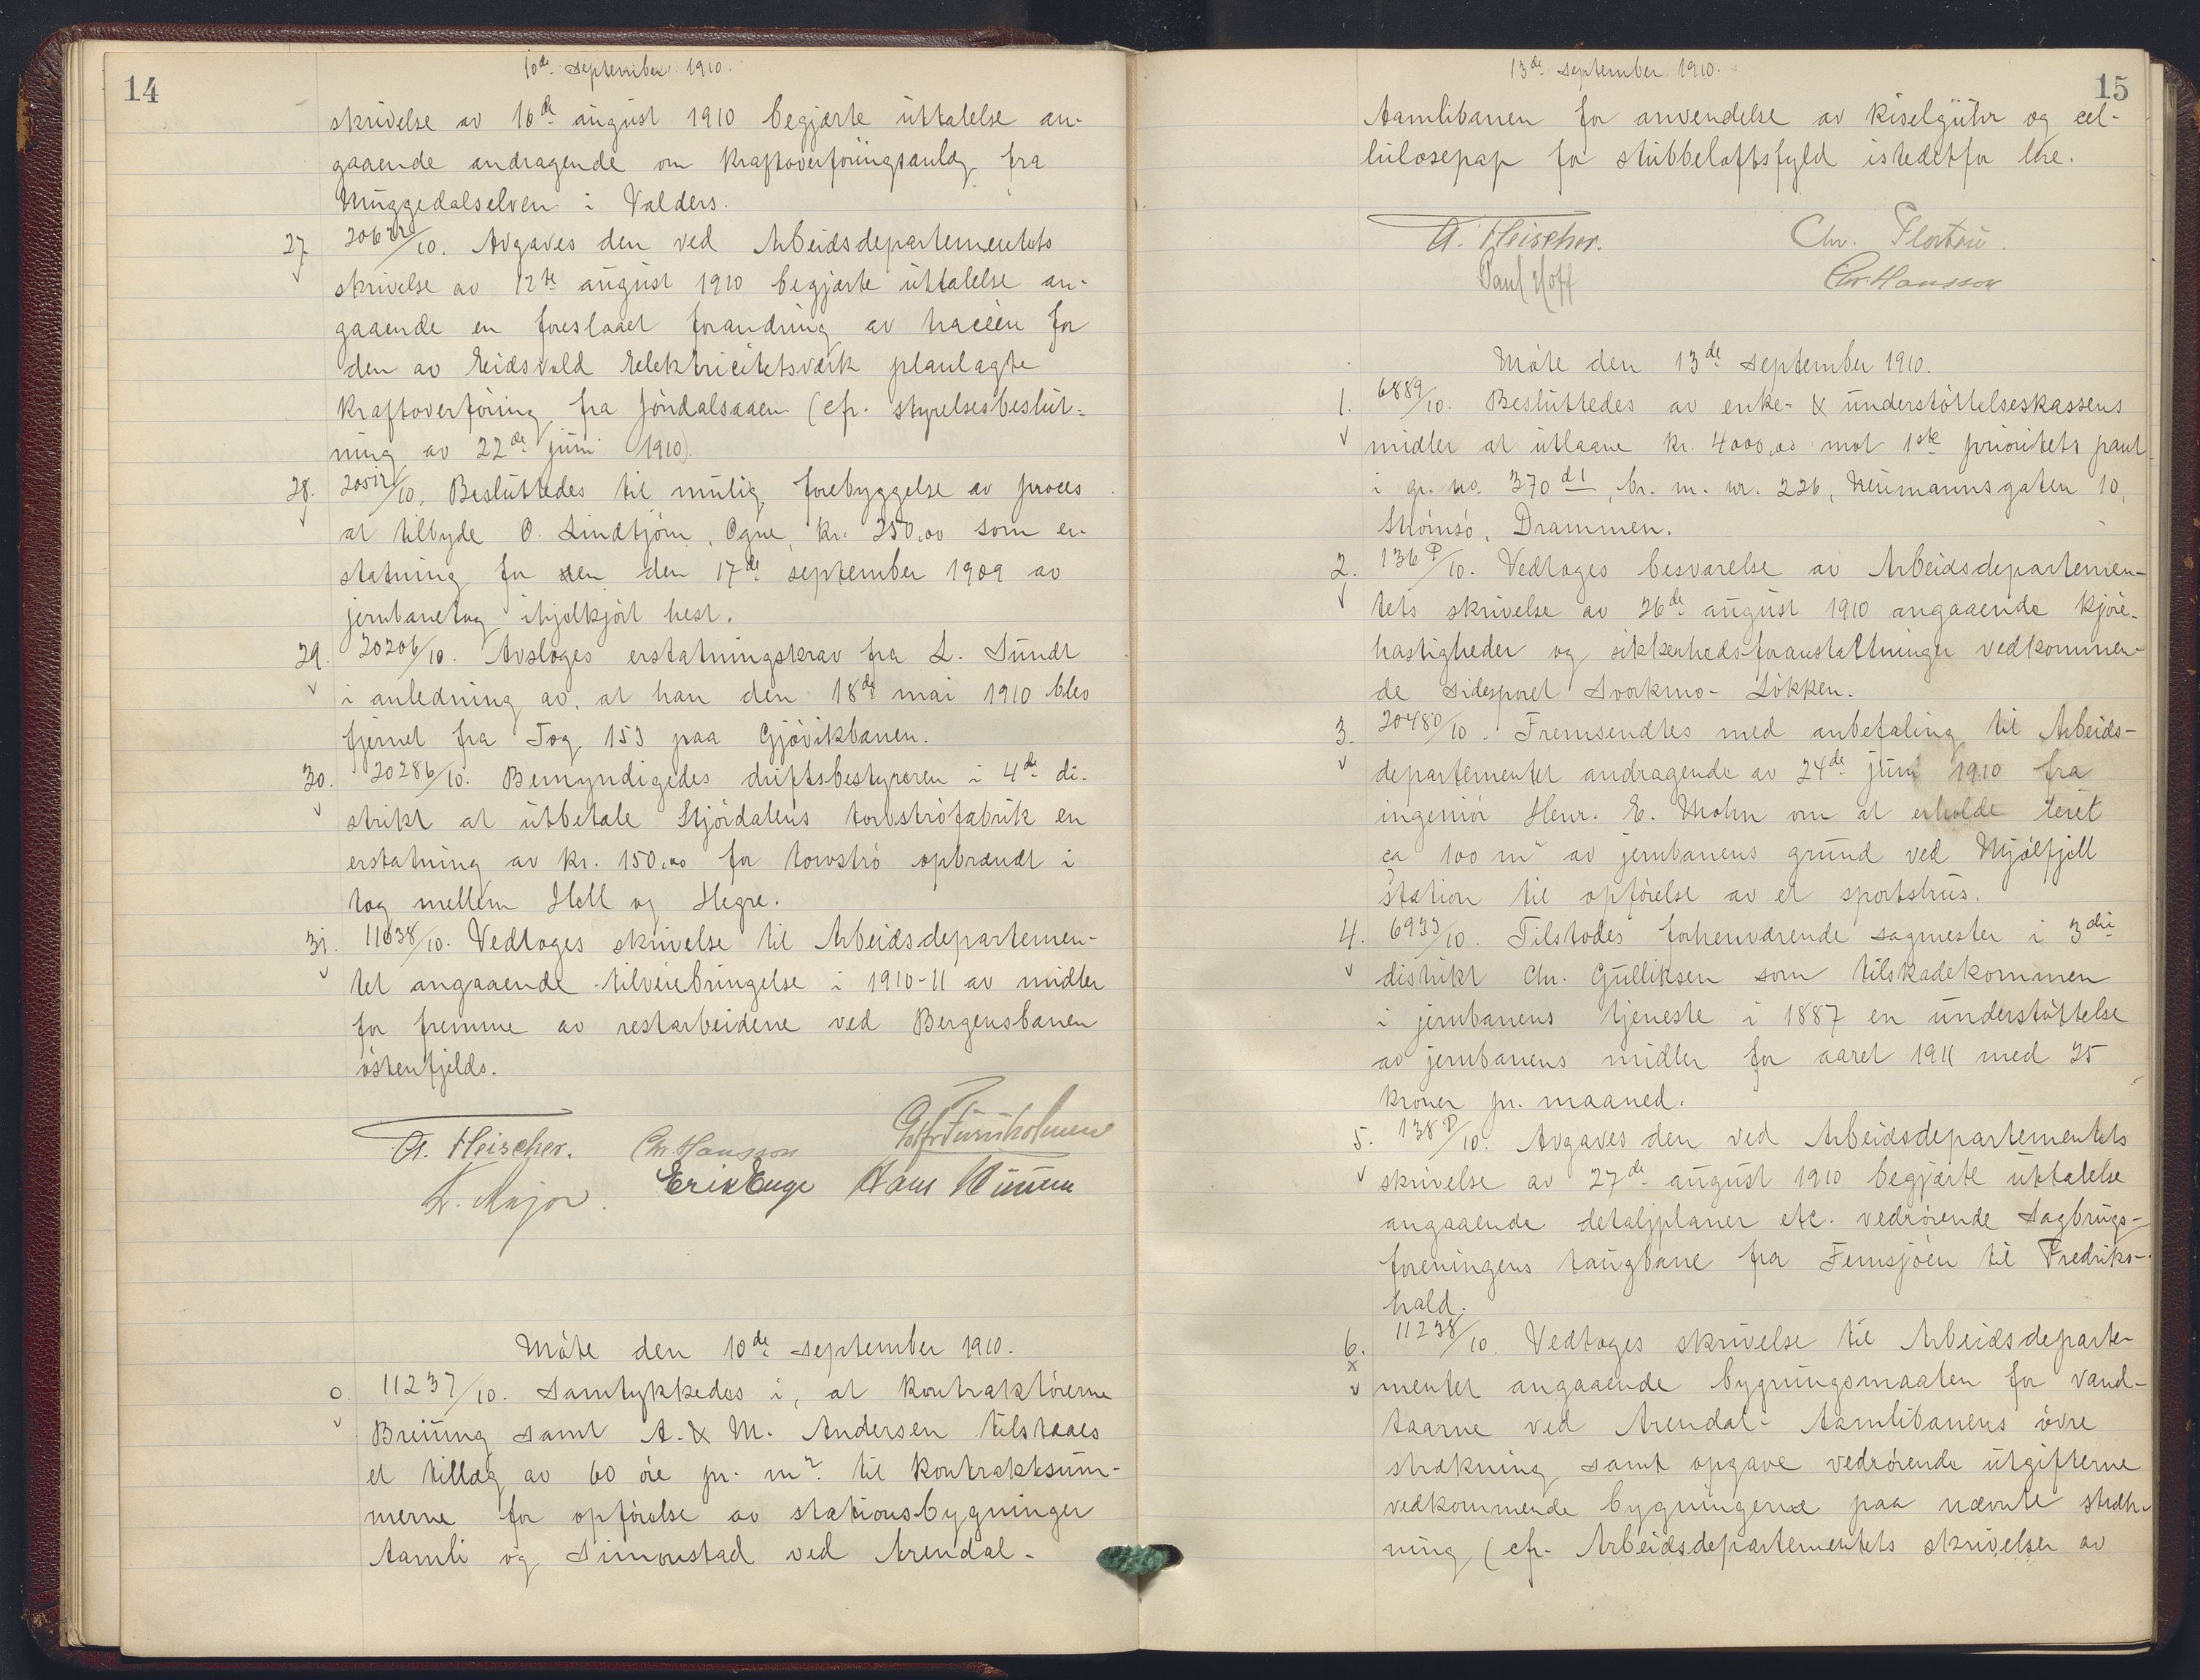 14
10de september 1910.
skrivelse av 16de august 1910 begjærte uttalelse an-
gaaende andragende om kraftoverføringsanlæg fra
Muggedalselven i Valders.
27. 20622/10. Avgaves den ved Arbeidsdepartementets
skrivelse av 12te august 1910 begjærte uttalelse an-
gaaende en foreslaaet forandring av traceen for
den av Eidsvold Elektricitetsværk planlagte
kraftoverføring fra Jøndalsaaen (cfr. styrelsesbeslut-
ning av 22de juni 1910).
28. 20512/10. Besluttedes til mulig forebyggelse av proces
at tilbyde O. Lindtjørn, Ogne, kr. 250,00 som er-
statning for den den 17de september 1909 av
jernbanetog ihjelkjørt hest.
29. 20206/10. Avsloges erstatningskrav fra L. Sundt
i anledning av, at han den 18de mai 1910 blev
fjernet fra Tog 153 paa Gjøvikbanen.
30. 20286/10. Bemyndigedes driftsbestyreren i 4de di-
strikt at utbetale Stjørdalens torvstrøfabrik en
erstatning av kr. 150,00 for torvstrø opbrændt i
tog mellem Hell og Hegre.
31. 11038/10. Vedtoges skrivelse til Arbeidsdepartemen-
tet angaaende tilveiebringelse i 1910-11 av midler
for fremme av restarbeidene ved Bergensbanen
østenfjelds.
A. Fleischer. Chr. Hansson
E. Major. Erik Enge Hans
Møte den 10de september 1910.
0. 11237/10. Samtykkedes i, at kontraktørerne
Breiung samt A. & M. Andersen tilstaaes
et tillæg av 60 øre pr. m2. til kontraktsum-
merne for opførelse av stationsbygninger
Aamli og Simonstad ved Arendal-
13de september 1910.
15
Aamlibanen for anvendelse av kiselguhr og cel-
lulosepap for stubbeloftsfyld istedetfor lere.
A. Fleischer. Chr. Platou.
Paul Hoff Chr. Hansson
Møte den 13de september 1910.
1. 6889/10. Besluttedes av enke- & understøttelseskassens
midler at utlaane kr. 4000,00 mot 1ste prioritets pant
i gr. no. 370 d1, br. m. nr. 226, Neumannsgaten 10,
Strømsø, Drammen.
2. 136 P/10. Vedtoges besvarelse av Arbeidsdepartemen-
tets skrivelse av 26de august 1910 angaaende kjøre-
hastigheder og sikkerhedsforanstaltninger vedkommen-
de sidesporet Svorkmo- Løkken.
3. 20480/10. Fremsendtes med anbefaling til Arbeids-
departementet andragende av 24de juni 1910 fra
ingeniør Henr. E. Mohn om at erholde leiet
ca 100 m2 av jernbanens grund ved Mjølfjell
station til opførelse av et sportshus.
4. 6933/10. Tilstodes forhenværende sagmester i 3die
distrikt Chr. Gulliksen som tilskadekommen
i jernbanens tjeneste i 1887 en understøttelse
av jernbanens midler for aaret 1911 med 25
kroner pr. maaned.
5. 138 P/10. Avgaves den ved Arbeidsdepartementets
skrivelse av 27de august 1910 begjærte uttalelse
angaaende detaljplaner etc. vedrørende Sagbrugs-
foreningens taugbane fra Femsjøen til Fredriks-
hald.
6. 11238/10. Vedtoges skrivelse til Arbeidsdeparte-
mentet angaaende bygningsmaaten for vand-
taarne ved Arendal- Aamlibanens øvre
strækning samt opgave vedrørende utgifterne
vedkommende bygningerne paa nævnte stræk-
ning (cfr. Arbeidsdepartementets skrivelser av